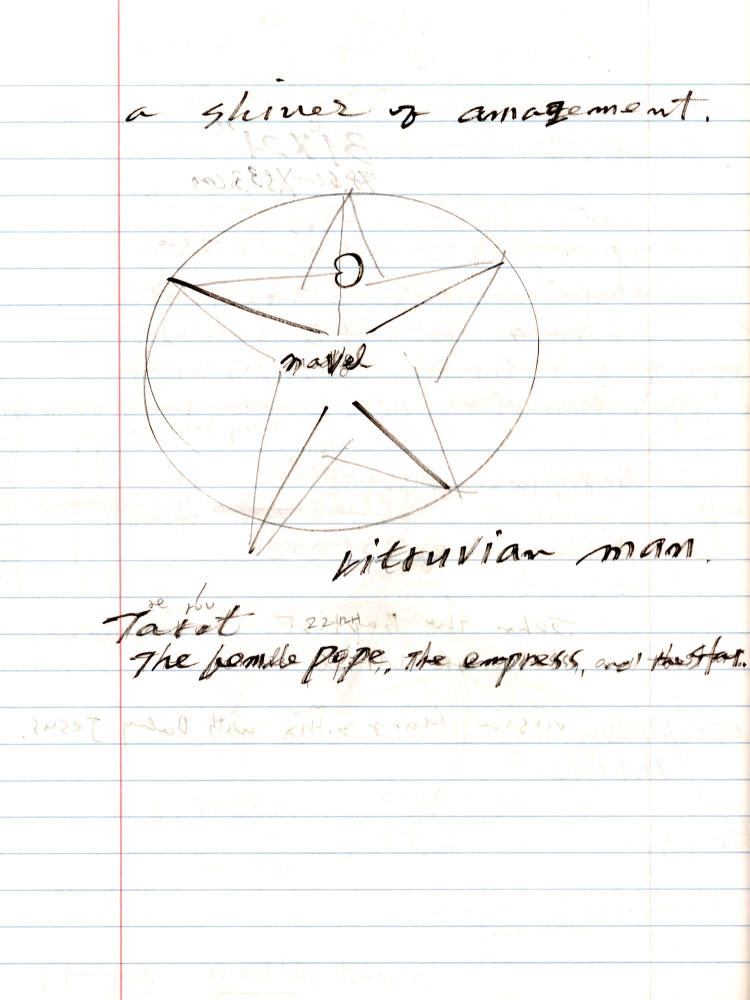 a shiver of amazement.
navel
Vitruvian man.
Tarot
The female pope, The empress, and the Star.